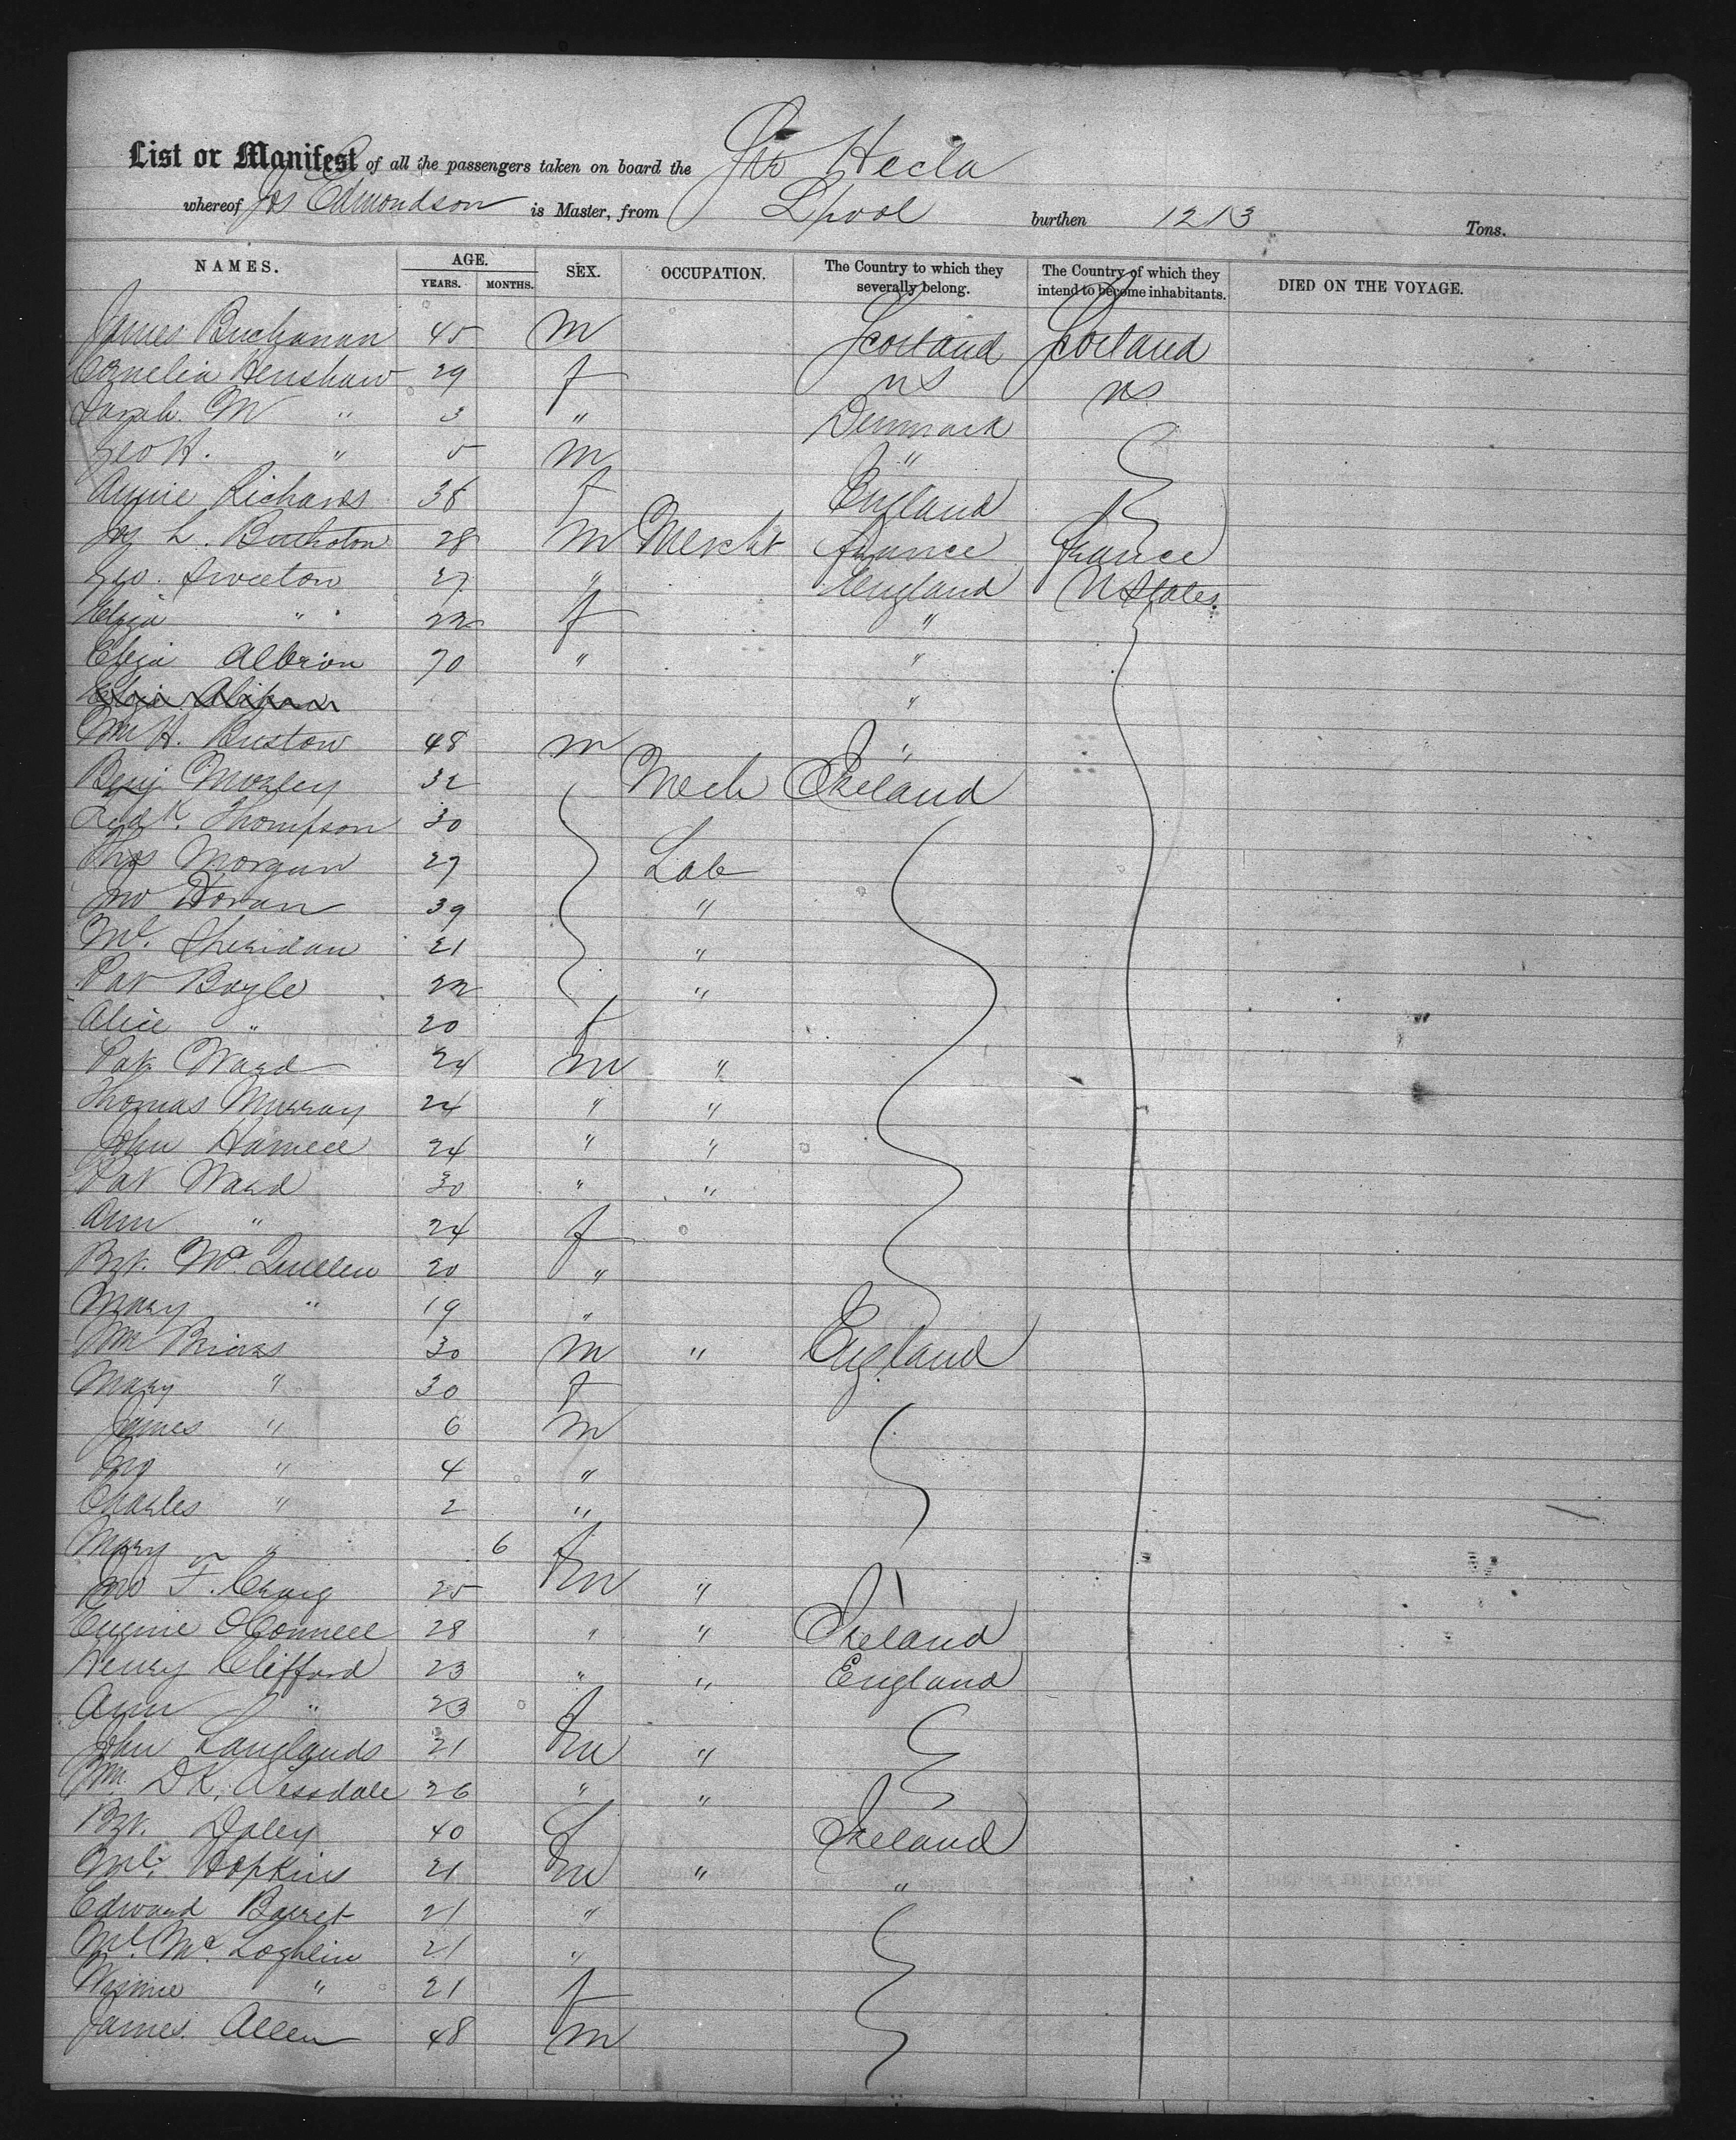 List or Manifest of all the passengers taken on board the Str Hecla
whereof Jas Edmondson is Master, from Lpool burthen 1213 Tons.
NAMES. AGE. SEX. OCCUPATION. The Country to which they severally belong. The Country of which they intend to become inhabitants. DIED ON THE VOYAGE.
YEARS. MONTHS.
James Buchanan 45 m Scotland Scotland
Cornelia Henshaw 29 f US US
Sarah M " 3 " Denmark
Geo H. " 5 m "
Annie Richards 38 f England
Jas L. 28 m Mercht France France
Geo. Sweeton 27 " England U States
Eliza " 22 f "
Eliza Albrion 70 " "
"
Wm H. Bustow 48 m "
Benj Morley 32 Mech Ireland
Fredk. Thompson 30
Thos Morgan 27 Lab
Jno Horan 39 "
Ml. Sheridan 21 "
Pat Boyle 22 "
Alice " 20 f
Pat Ward 24 m "
Thomas Murray 24 " "
John Hamell 24 " "
Pat Ward 30 " "
Ann " 24 f
Bgt. Mc Quillen 20 "
Mary " 19 "
Wm Brines 30 m " England
Mary " 30 f
James " 6 m
Jno " 4 "
Charles " 2 "
Mary " 6 f
Jno F. Craig 25 m "
Eugine OConnell 28 " " Ireland
Henry Clifford 23 " " England
Ann " 23 f
John Langlands 21 m "
Wm. D K. Tessdale 26 " "
Bgt. Daley 40 f Ireland
Ml. Hopkins 21 m " "
Edward Barret 21 "
Ml. Mc Loghlin 21 "
Winnie " 21 f
James Allen 48 m